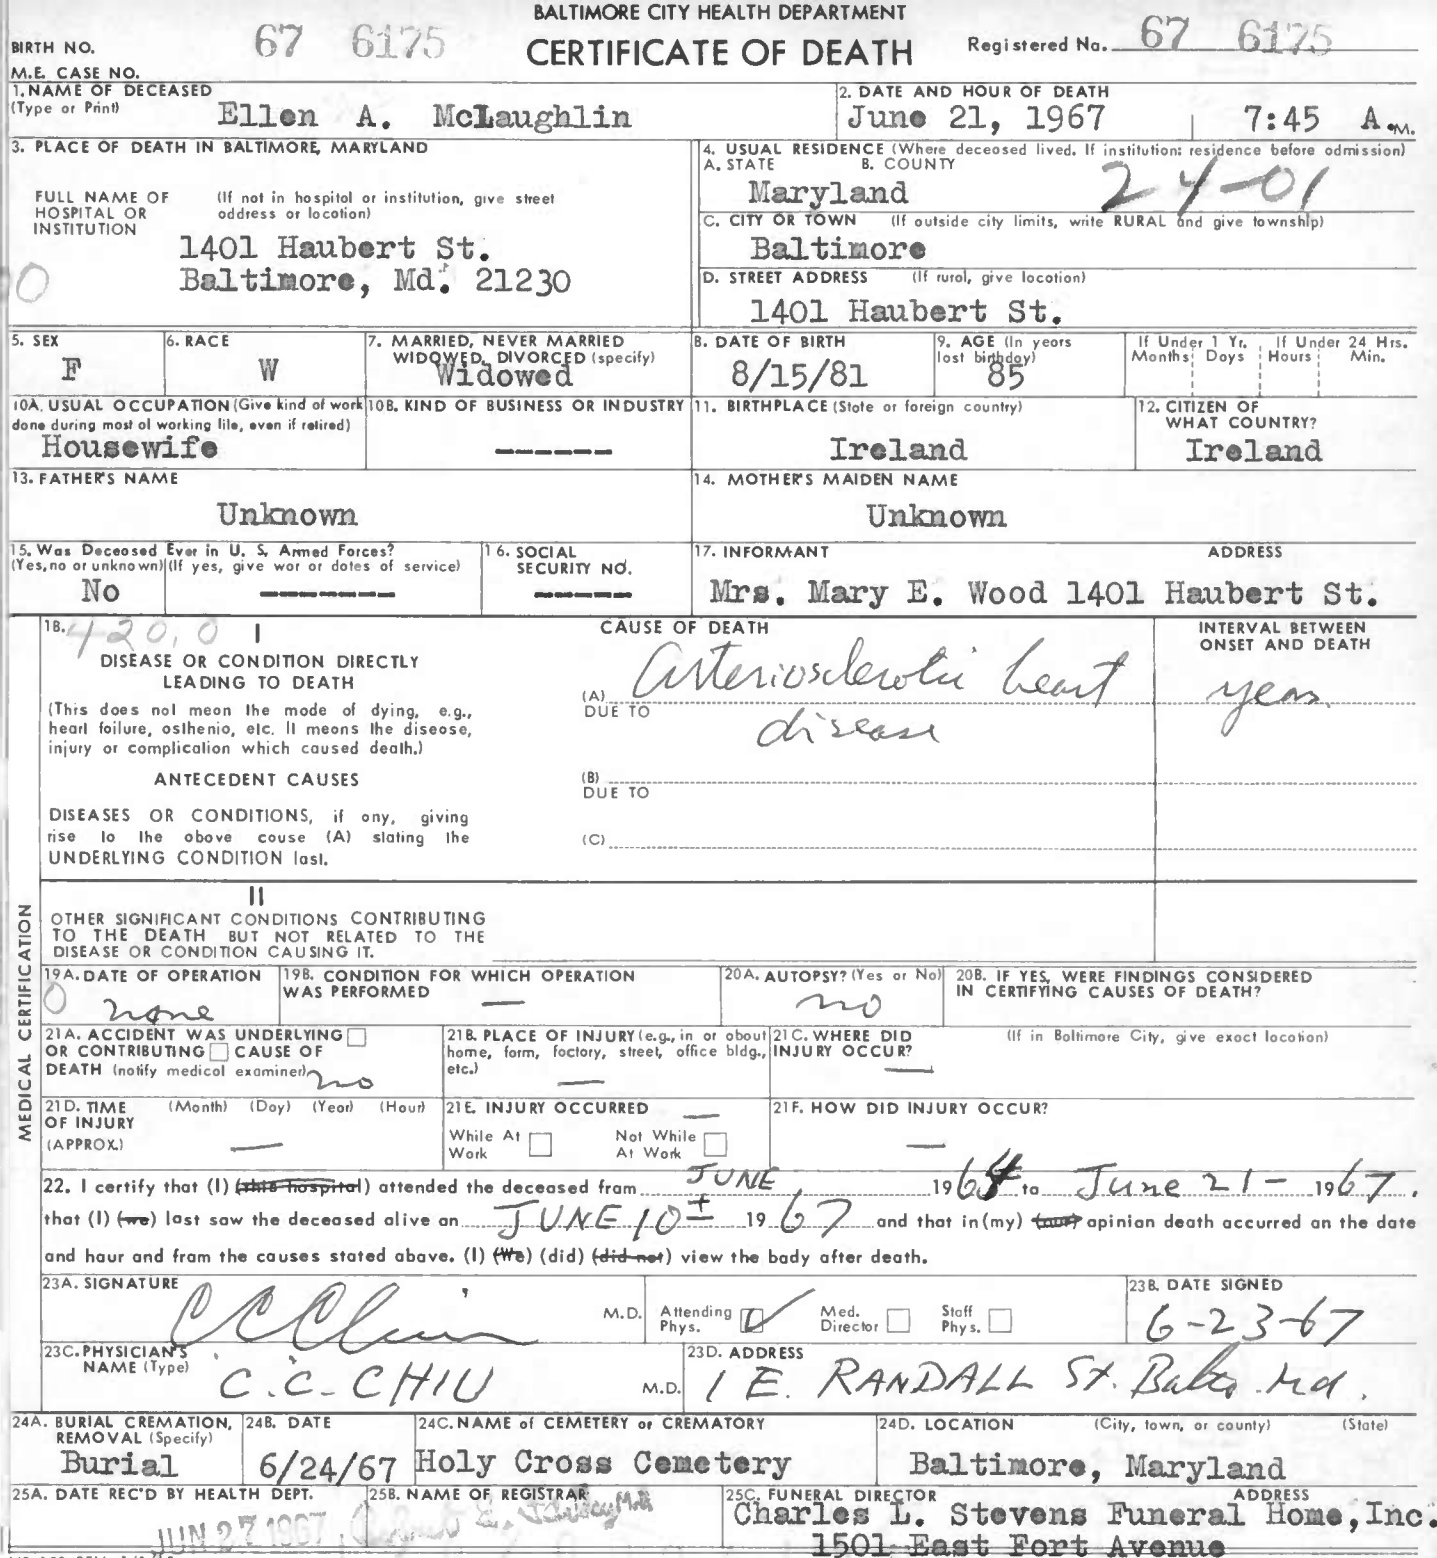 BALTIMORE CITY HEALTH DEPARTMENT
BIRTH NO. 67 6175 CERTIFICATE OF DEATH Registered No. 67 6175
M.E. CASE NO.
1. NAME OF DECEASED (Type or Print) Ellen A. McLaughlin
2. DATE AND HOUR OF DEATH June 21, 1967 7:45 A.M.
3. PLACE OF DEATH IN BALTIMORE, MARYLAND
FULL NAME OF HOSPITAL OR INSTITUTION (If not in hospital or institution, give street address or location)
1401 Haubert St.
Baltimore, Md. 21230
4. USUAL RESIDENCE (Where deceased lived. If institution: residence before admission)
A. STATE B. COUNTY
Maryland 24-01
C. CITY OR TOWN (If outside city limits, write RURAL and give township)
Baltimore
D. STREET ADDRESS (If rural, give location)
1401 Haubert St.
5. SEX F
6. RACE W
7. MARRIED, NEVER MARRIED WIDOWED, DIVORCED (specify) Widowed
8. DATE OF BIRTH 8/15/81
9. AGE (In years last birthday) 85
If Under 1 Yr. Months Days If Under 24 Hrs. Hours Min.
10A. USUAL OCCUPATION (Give kind of work done during most of working life, even if retired) Housewife
10B. KIND OF BUSINESS OR INDUSTRY -------
11. BIRTHPLACE (State or foreign country) Ireland
12. CITIZEN OF WHAT COUNTRY? Ireland
13. FATHER'S NAME Unknown
14. MOTHER'S MAIDEN NAME Unknown
15. Was Deceased Ever in U. S. Armed Forces? (Yes, no or unknown) (If yes, give war or dates of service) No --------
16. SOCIAL SECURITY NO. ------
17. INFORMANT ADDRESS
Mrs. Mary E. Wood 1401 Haubert St.
MEDICAL CERTIFICATION
18. 420.0 I CAUSE OF DEATH INTERVAL BETWEEN ONSET AND DEATH
DISEASE OR CONDITION DIRECTLY LEADING TO DEATH
(This does not mean the mode of dying, e.g., heart failure, asthenia, etc. It means the disease, injury or complication which caused death.)
(A) Arteriosclerotic heart years
DUE TO disease
ANTECEDENT CAUSES
DISEASES OR CONDITIONS, if any, giving rise to the above cause (A) stating the UNDERLYING CONDITION last.
(B)
DUE TO
(C)
II
OTHER SIGNIFICANT CONDITIONS CONTRIBUTING TO THE DEATH BUT NOT RELATED TO THE DISEASE OR CONDITION CAUSING IT.
19A. DATE OF OPERATION 0 none
19B. CONDITION FOR WHICH OPERATION WAS PERFORMED —
20A. AUTOPSY? (Yes or No) no
20B. IF YES, WERE FINDINGS CONSIDERED IN CERTIFYING CAUSES OF DEATH?
21A. ACCIDENT WAS UNDERLYING OR CONTRIBUTING CAUSE OF DEATH (notify medical examiner) no
21B. PLACE OF INJURY (e.g., in or about home, farm, factory, street, office bldg., etc.) —
21C. WHERE DID INJURY OCCUR? (If in Baltimore City, give exact location) —
21D. TIME OF INJURY (APPROX.) (Month) (Day) (Year) (Hour) —
21E. INJURY OCCURRED —
While At Work Not While At Work
21F. HOW DID INJURY OCCUR? —
22. I certify that (I) (this hospital) attended the deceased from JUNE 1964 to June 21- 1967,
that (I) (we) last saw the deceased alive on JUNE 10 ± 1967 and that in (my) (our) opinion death occurred on the date
and hour and from the causes stated above. (I) (We) (did) (did not) view the body after death.
23A. SIGNATURE CCChiu M.D. Attending Phys. Med. Director Staff Phys.
23B. DATE SIGNED 6-23-67
23C. PHYSICIAN'S NAME (Type) C.C. CHIU M.D.
23D. ADDRESS 1 E. RANDALL St. Balto. Md.
24A. BURIAL CREMATION, REMOVAL (Specify) Burial
24B. DATE 6/24/67
24C. NAME of CEMETERY or CREMATORY Holy Cross Cemetery
24D. LOCATION (City, town, or county) (State) Baltimore, Maryland
25A. DATE REC'D BY HEALTH DEPT. JUN 27 1967
25B. NAME OF REGISTRAR
25C. FUNERAL DIRECTOR ADDRESS
Charles L. Stevens Funeral Home, Inc.
1501 East Fort Avenue